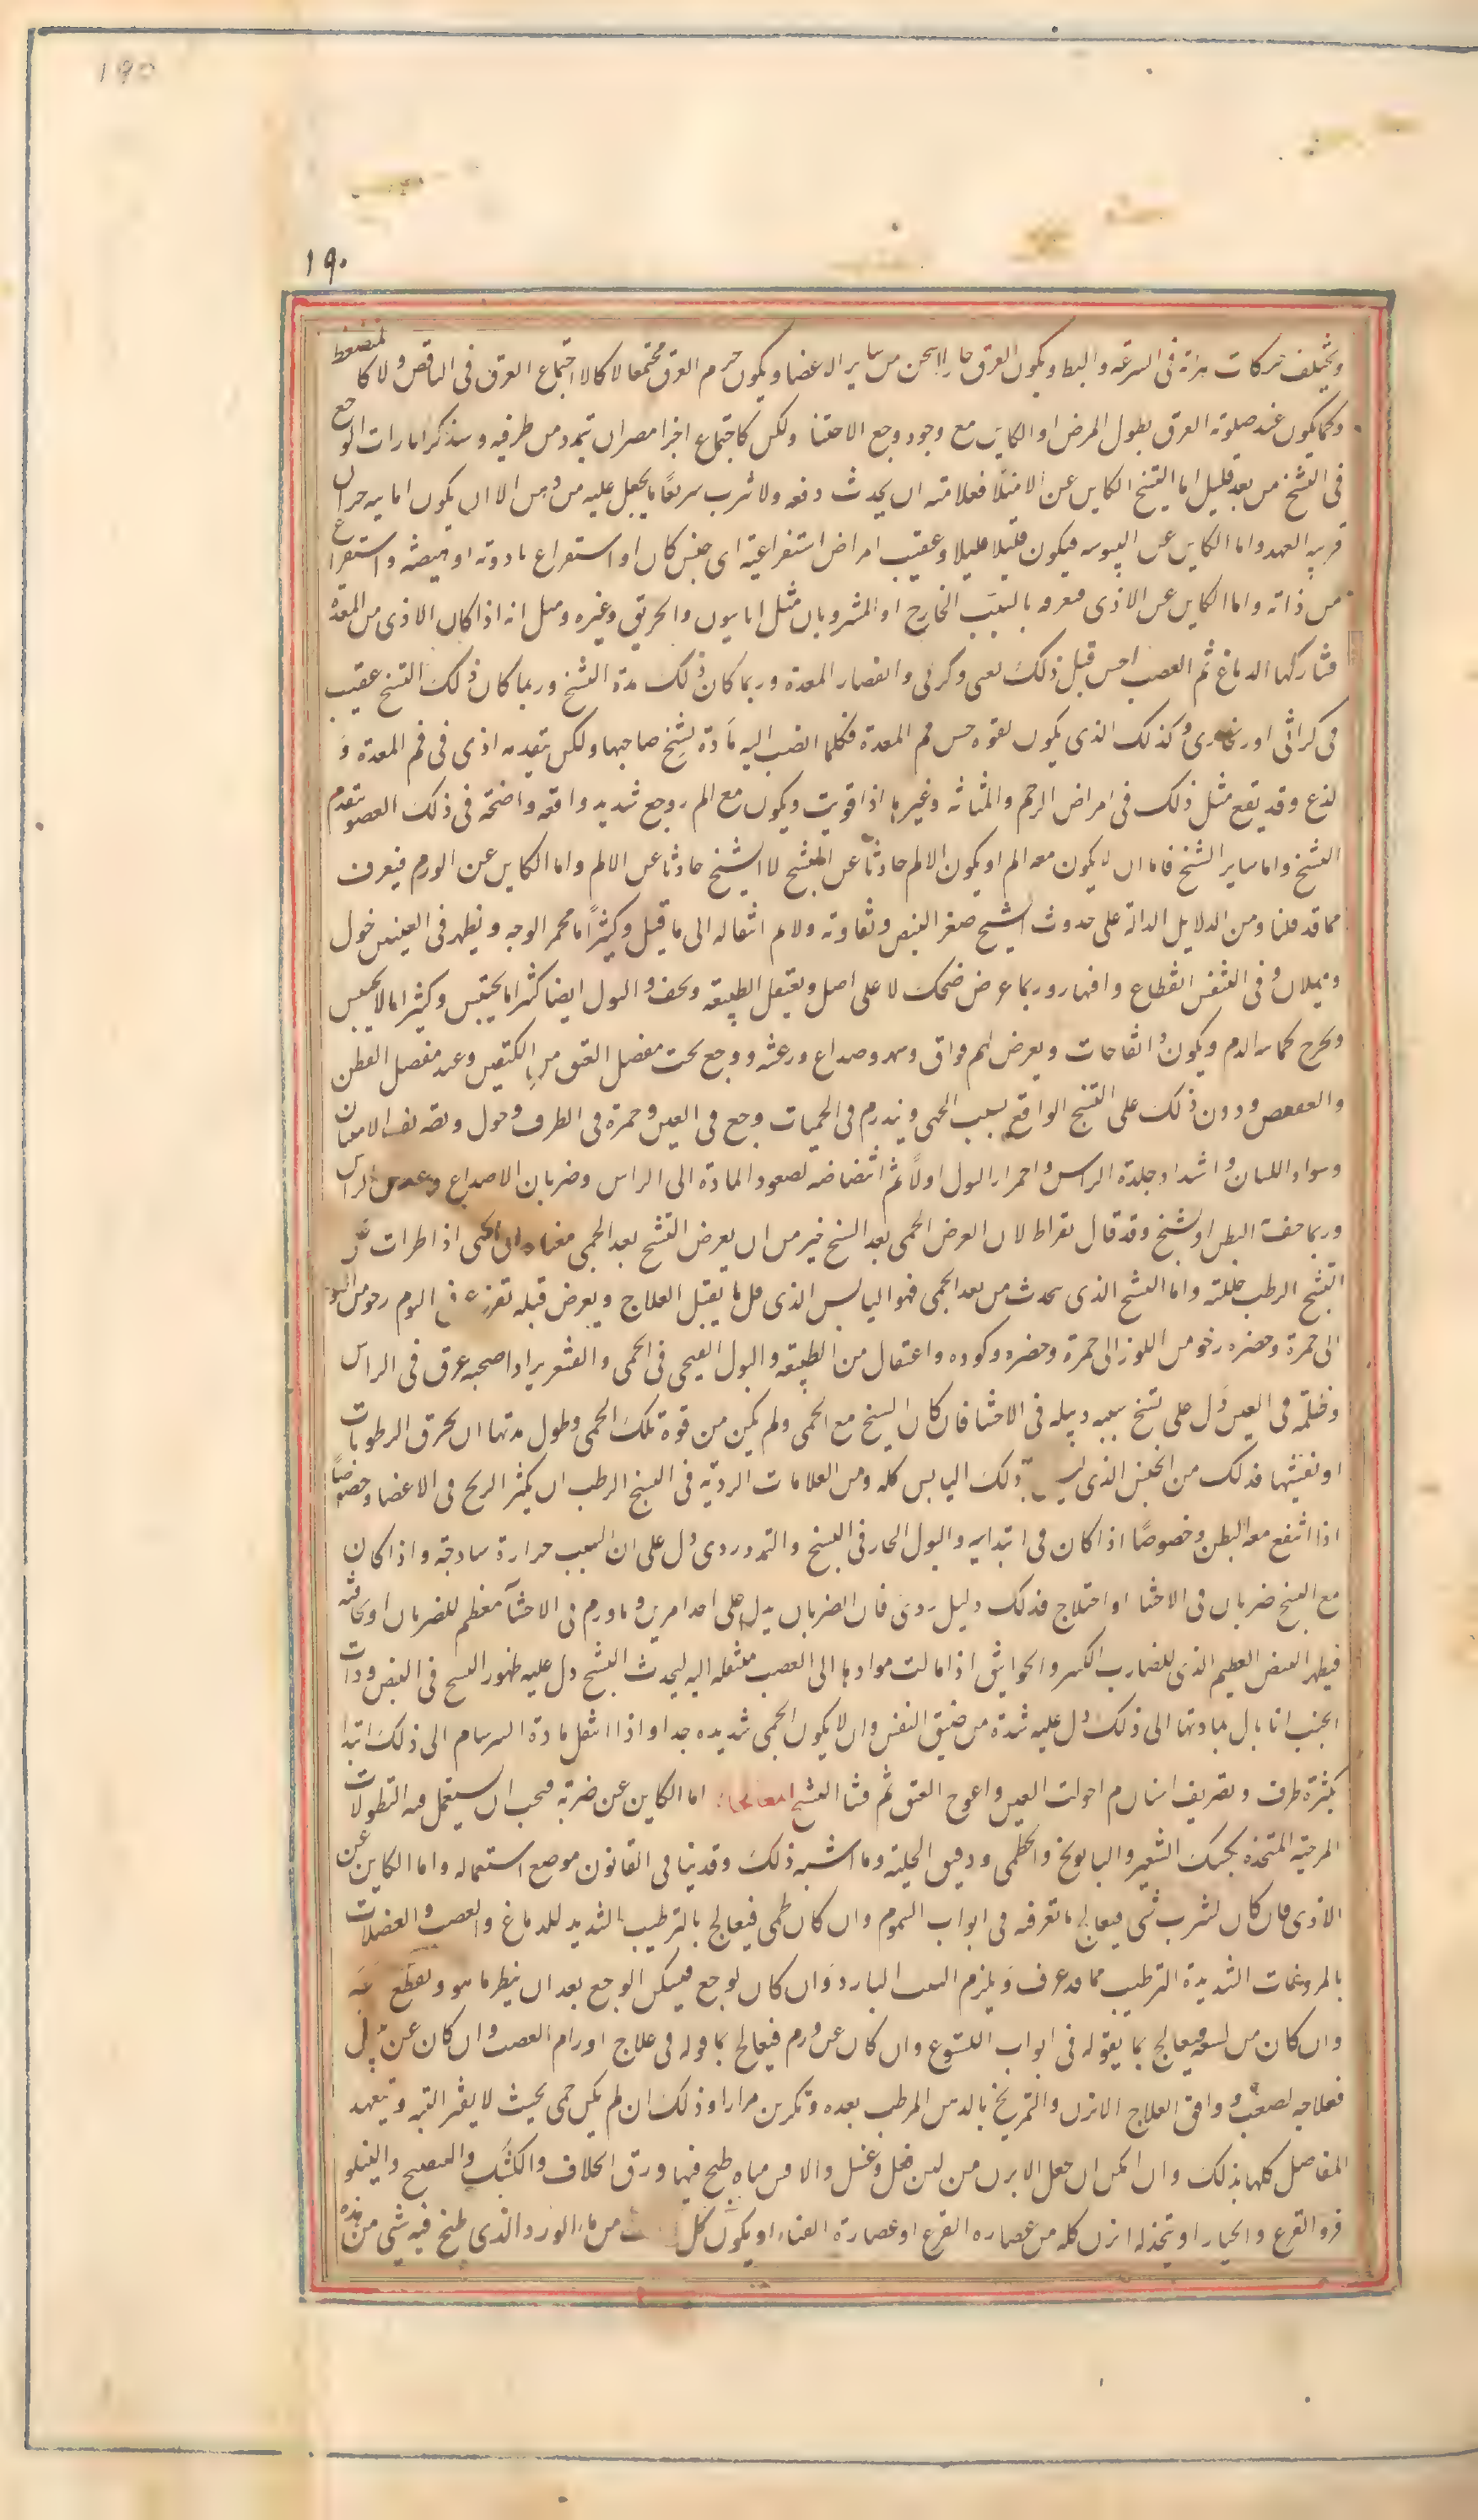 190
١٩٠
ويختلف حركات نبراته فى السرعة والبط ويكون العرق حارا اسخن من ساير الاعضا ويكون جرم العرق مجتمعا لا كالاجتماع العرق فى الناقص ولا كالمنضغط
وكما يكون عند صلوبة العرق بطول المرض او الكاين مع وجود وجع الاحشا ولكن كاجتماع اجزا مصران تمدد من طرفيه وسنذكر امارات الوجع
فى التشنج من بعد قليل اما التشنج الكاين عن الامتلا فعلامته ان يحدث دفعه ولا تشرب سريعا ما يجعل عليه من دهن الا ان يكون اصابه حر ان
قريب العهد واما الكاين عن اليبوسه فيكون قليلا قليلا وعقيب امراض استفراغية اى جنس كان او استفراغ بادوية او هيضة واستفراغ
من ذاته واما الكاين عن الاذى فتعرفه بالسبب الخارج او المشروبان مثل افيون والخربق وغيره ومثل انه اذا كان الاذى من المعدة
فشاركها الدماغ ثم العصب احس قبل ذلك بغثى وكرب وانعصار المعدة وربما كان ذلك مدة التشنج وربما كان ذلك التشنج عقيب
قى كراثى او زنجارى وكذلك الذى يكون لقوه حس فم المعدة فكلما انصب اليه مادة تشنج صاحبها ولكن يتقدمه اذى فى فم المعدة و
لذع وقد يقع مثل ذلك فى امراض الرحم والمثانة وغيرها اذا قويت ويكون مع الم ووجع شديد وافة واضحة فى ذلك العضو يتقدم
التشنج واما ساير التشنج فاما ان لا يكون معه الم او يكون الالم حادثا عن التشنج لا التشنج حادثا عن الالم واما الكاين عن الورم فيعرف
مما قد قلنا ومن الدلايل الدالة على حدوث التشنج صغر النبض وتفاوته ولا م انتقاله الى ما قيل وكثيرا ما يحمر الوجه ويظهر فى العينين حول
وميلان وفى التنفس انقطاع وانبهار وربما عرض ضحك لا على اصل ويعتقل الطبيعة ويجف والبول ايضا كثيرا ما يحتبس وكثيرا ما لا يحتبس
ويخرج كمائية الدم ويكون ذا نفاخات ويعرض لهم فواق وسهر وصداع ورعشة ووجع تحت مفصل العنق بين الكتفين وعند مفصل القطن
والعصعص ودون ذلك على التشنج الواقع بسبب الحمى وينذر به فى الحميات وجع فى العين وحمرة فى الطرف وحول وتصريف الاسنان
وسواد اللسان واشتداد جلدة الراس واحمرار البول اولا ثم ابيضاضه لصعود المادة الى الراس وضربان الاصداع وعروق الراس
وربما جفت البطن او تشنج وقد قال بقراط لان العرض الحمى بعد التشنج خير من ان يعرض التشنج بعد الحمى معناه ان الحمى اذا طرات على
التشنج الرطب حللته واما التشنج الذى يحدث من بعد الحمى فهو اليابس الذى قل ما يقبل العلاج ويعرض قبله تفزع فى النوم وتحول من اللون
الى حمرة وخضرة وتحول من اللون الى حمرة وخضرة وكمودة واعتقال من الطبيعة والبول القيحى فى الحمى والقشعريرة اذا صحبه عرق فى الراس
وظلمة فى العين دل على تشنج سببه دبيلة فى الاحشا فان كان التشنج مع الحمى ولم يكن من قوة تلك الحمى وطول مدتها ان يحرق الرطوبات
او تفنيها فذلك من الجنس الذى ليس ذلك اليابس كله ومن العلامات الردية فى التشنج الرطب ان يكثر الريح فى الاعضا وخصوصا
اذا انتفخ معه البطن وخصوصا اذا كان فى ابتدايه والبول الحار فى التشنج والتمدد ردى دل على ان السبب حرارة ساذجة واذا كان
مع التشنج ضربان فى الاحشا او اختلاج فذلك دليل ردى فان الضربان يدل على احد امرين وما ورم فى الاحشا معظم للضربان او نحافة
فيظهر النبض العظيم الذى للضارب الكبير والخوانيق اذا مالت موادها الى العصب منتقلة اليه ليحدث التشنج دل عليه ظهور التشنج فى النبض وذات
الجنب اذا مال بمادتها الى ذلك دل عليه شدة من ضيق النفس وان لا يكون الحمى شديدة جدا واذا انتقل مادة السرسام الى ذلك ابتدا
بكثرة طرف وتصريف اسنان ثم احولت العين واعوج العنق ثم فشا التشنج المعالجات اما الكاين عن ضربة فيجب ان يستعمل فيه النطولات
المرخية المتخذة بكشك الشعير والبابونج والخطمى ودقيق الحلبة وما اشبه ذلك وقد بينا فى القانون موضع استعماله واما الكاين عن
الاذى فان كان لشرب شى فيعالج بما تعرفه فى ابواب السموم وان كان لحمى فيعالج بالترطيب الشديد للدماغ والعصب والعضلات
بالمروخات الشديدة الترطيب مما قد عرف ويلزم البيت البارد وان كان لوجع فيسكن الوجع بعد ان ينظر ما هو ويقطع سببه
وان كان من لسعة فيعالج بما يقوله فى ابواب اللسوع وان كان عن ورم فيعالج بما قوله فى علاج اورام العصب وان كان عن يبس
فعلاجه لصعب ووافق العلاج الابزن والتمريخ بالدهن المرطب بعده وتكريره مرارا وذلك ان لم يكن حمى بحيث لا يفتر البتة ويتعهد
المفاصل كلها بذلك وان امكن ان يجعل الابزن من لبن فعل وغسل والا فمن مياه طبخ فيها ورق الخلاف والكشك والبنفسج والنيلوفر
فر والقرع والخيار او يتخذ له ابزن كله من عصاره القرع او عصارة القثاء او يكون كل من ماء الورد الذى طبخ فيه شى من هذه